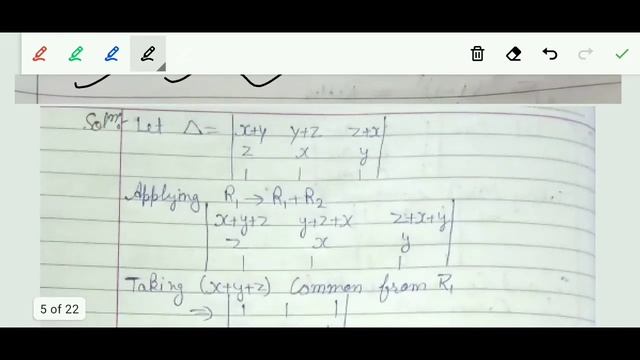 Solⁿ:- Let Δ = | x+y y+z z+x |
| z x y |
| 1 1 1 |
Applying R₁ → R₁ + R₂
| x+y+z y+z+x z+x+y |
| z x y |
| 1 1 1 |
Taking (x+y+z) Common from R₁
⇒ | 1 1 1 |
5 of 22